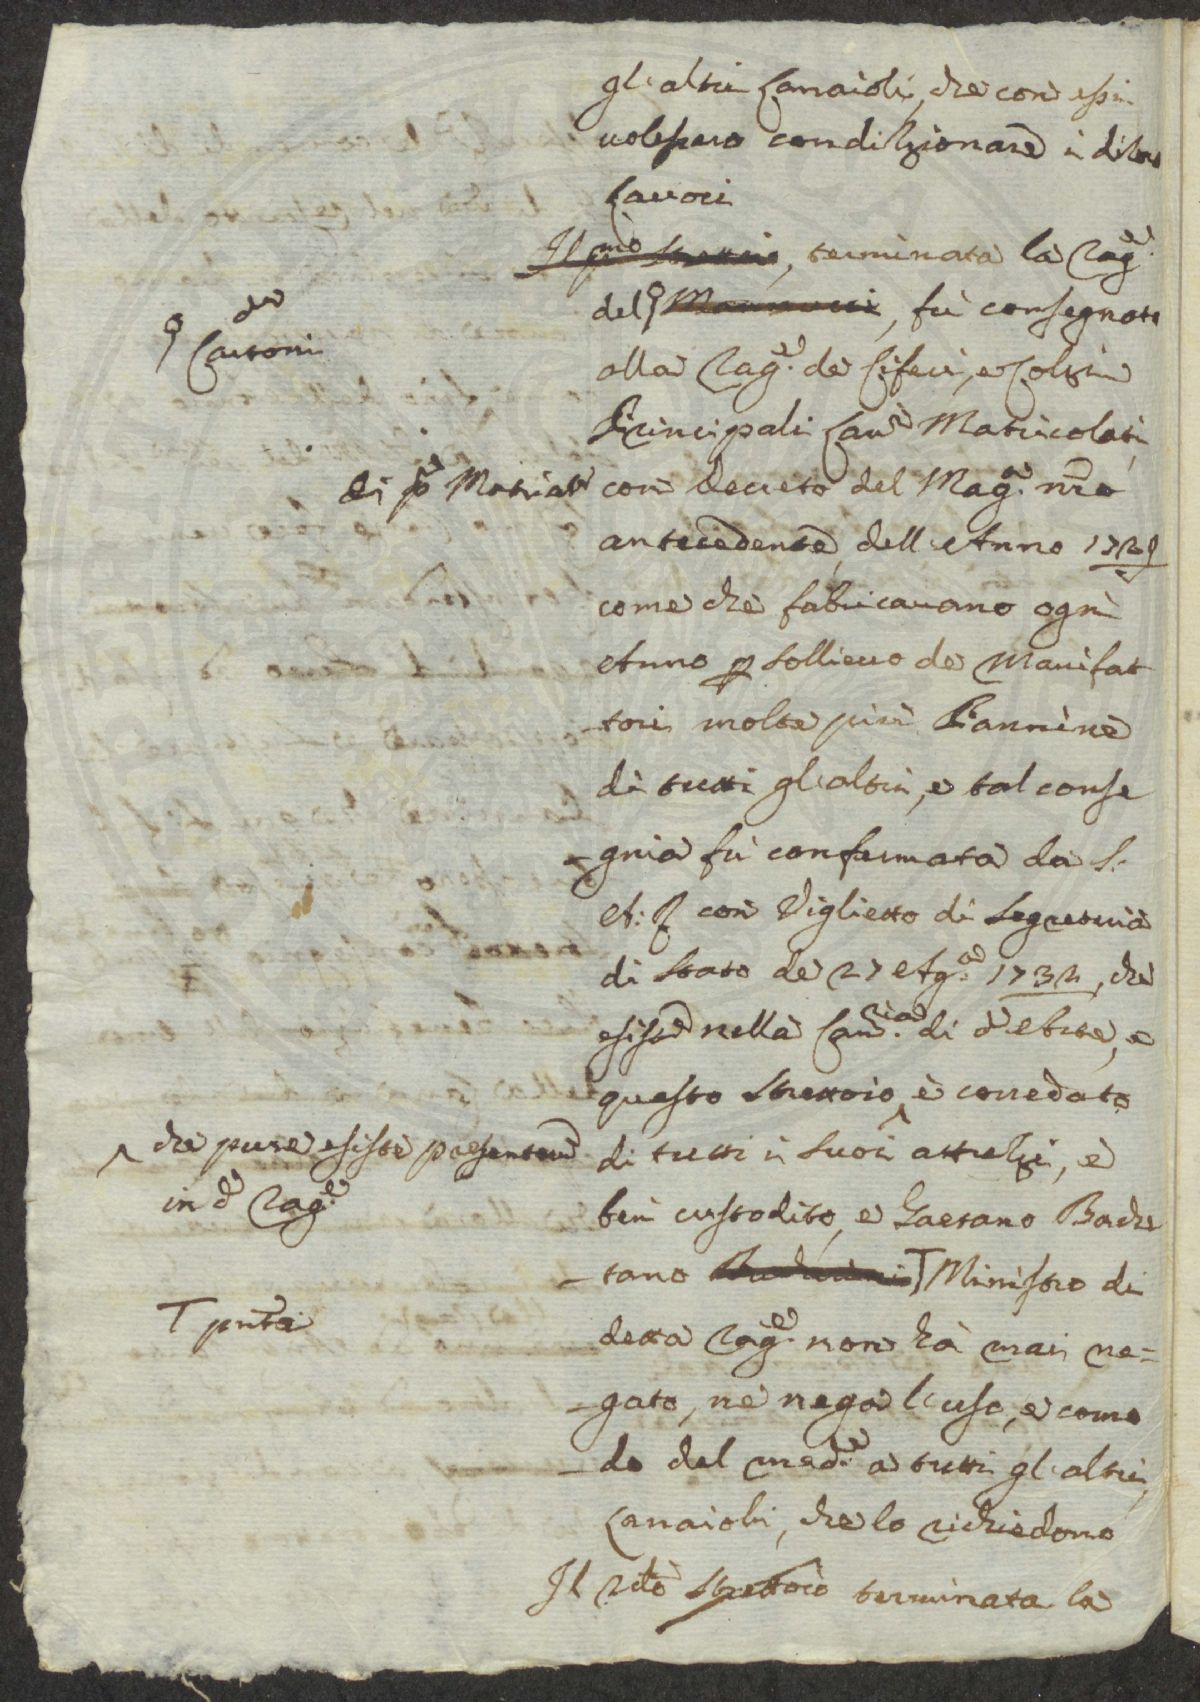 gl'altri Lanaioli, che con essi
volessero condizionare i di loro
Lavori
Il pmo Strettoio, terminata la Rag.e
del, fù consegnato
alla Rag.e de Ciferi, e Colzi
Principali Lani Matricolati
con decreto del Mag.o nro
antecedente, dell'Anno
come che fabricavano ogni
Anno p sollievo de Manifat
-tori molte più Pannine
di tutti gl'altri, e tal conse
-gnia fù confermata da S.
A: R con Viglietto di Segreteria
di Stato de 27 Ag.o 1732, che
esiste nella Can.ria di d Arte, e
questo Strettoio ^ è corredato
di tutti i suoi attrezzi, è
ben custodito, e Gaetano Bache
-tano T Ministro di
detta Rag.e non hà mai ne=
-gato, ne nega l'uso, e como
-do del med.o a tutti gl'altri
Lanaioli, che lo richiedono
Il 2do Strettoio terminata la
Cartoni
di pa Matriala
^ che pure esiste presentem
in da Rag.e
T pnta